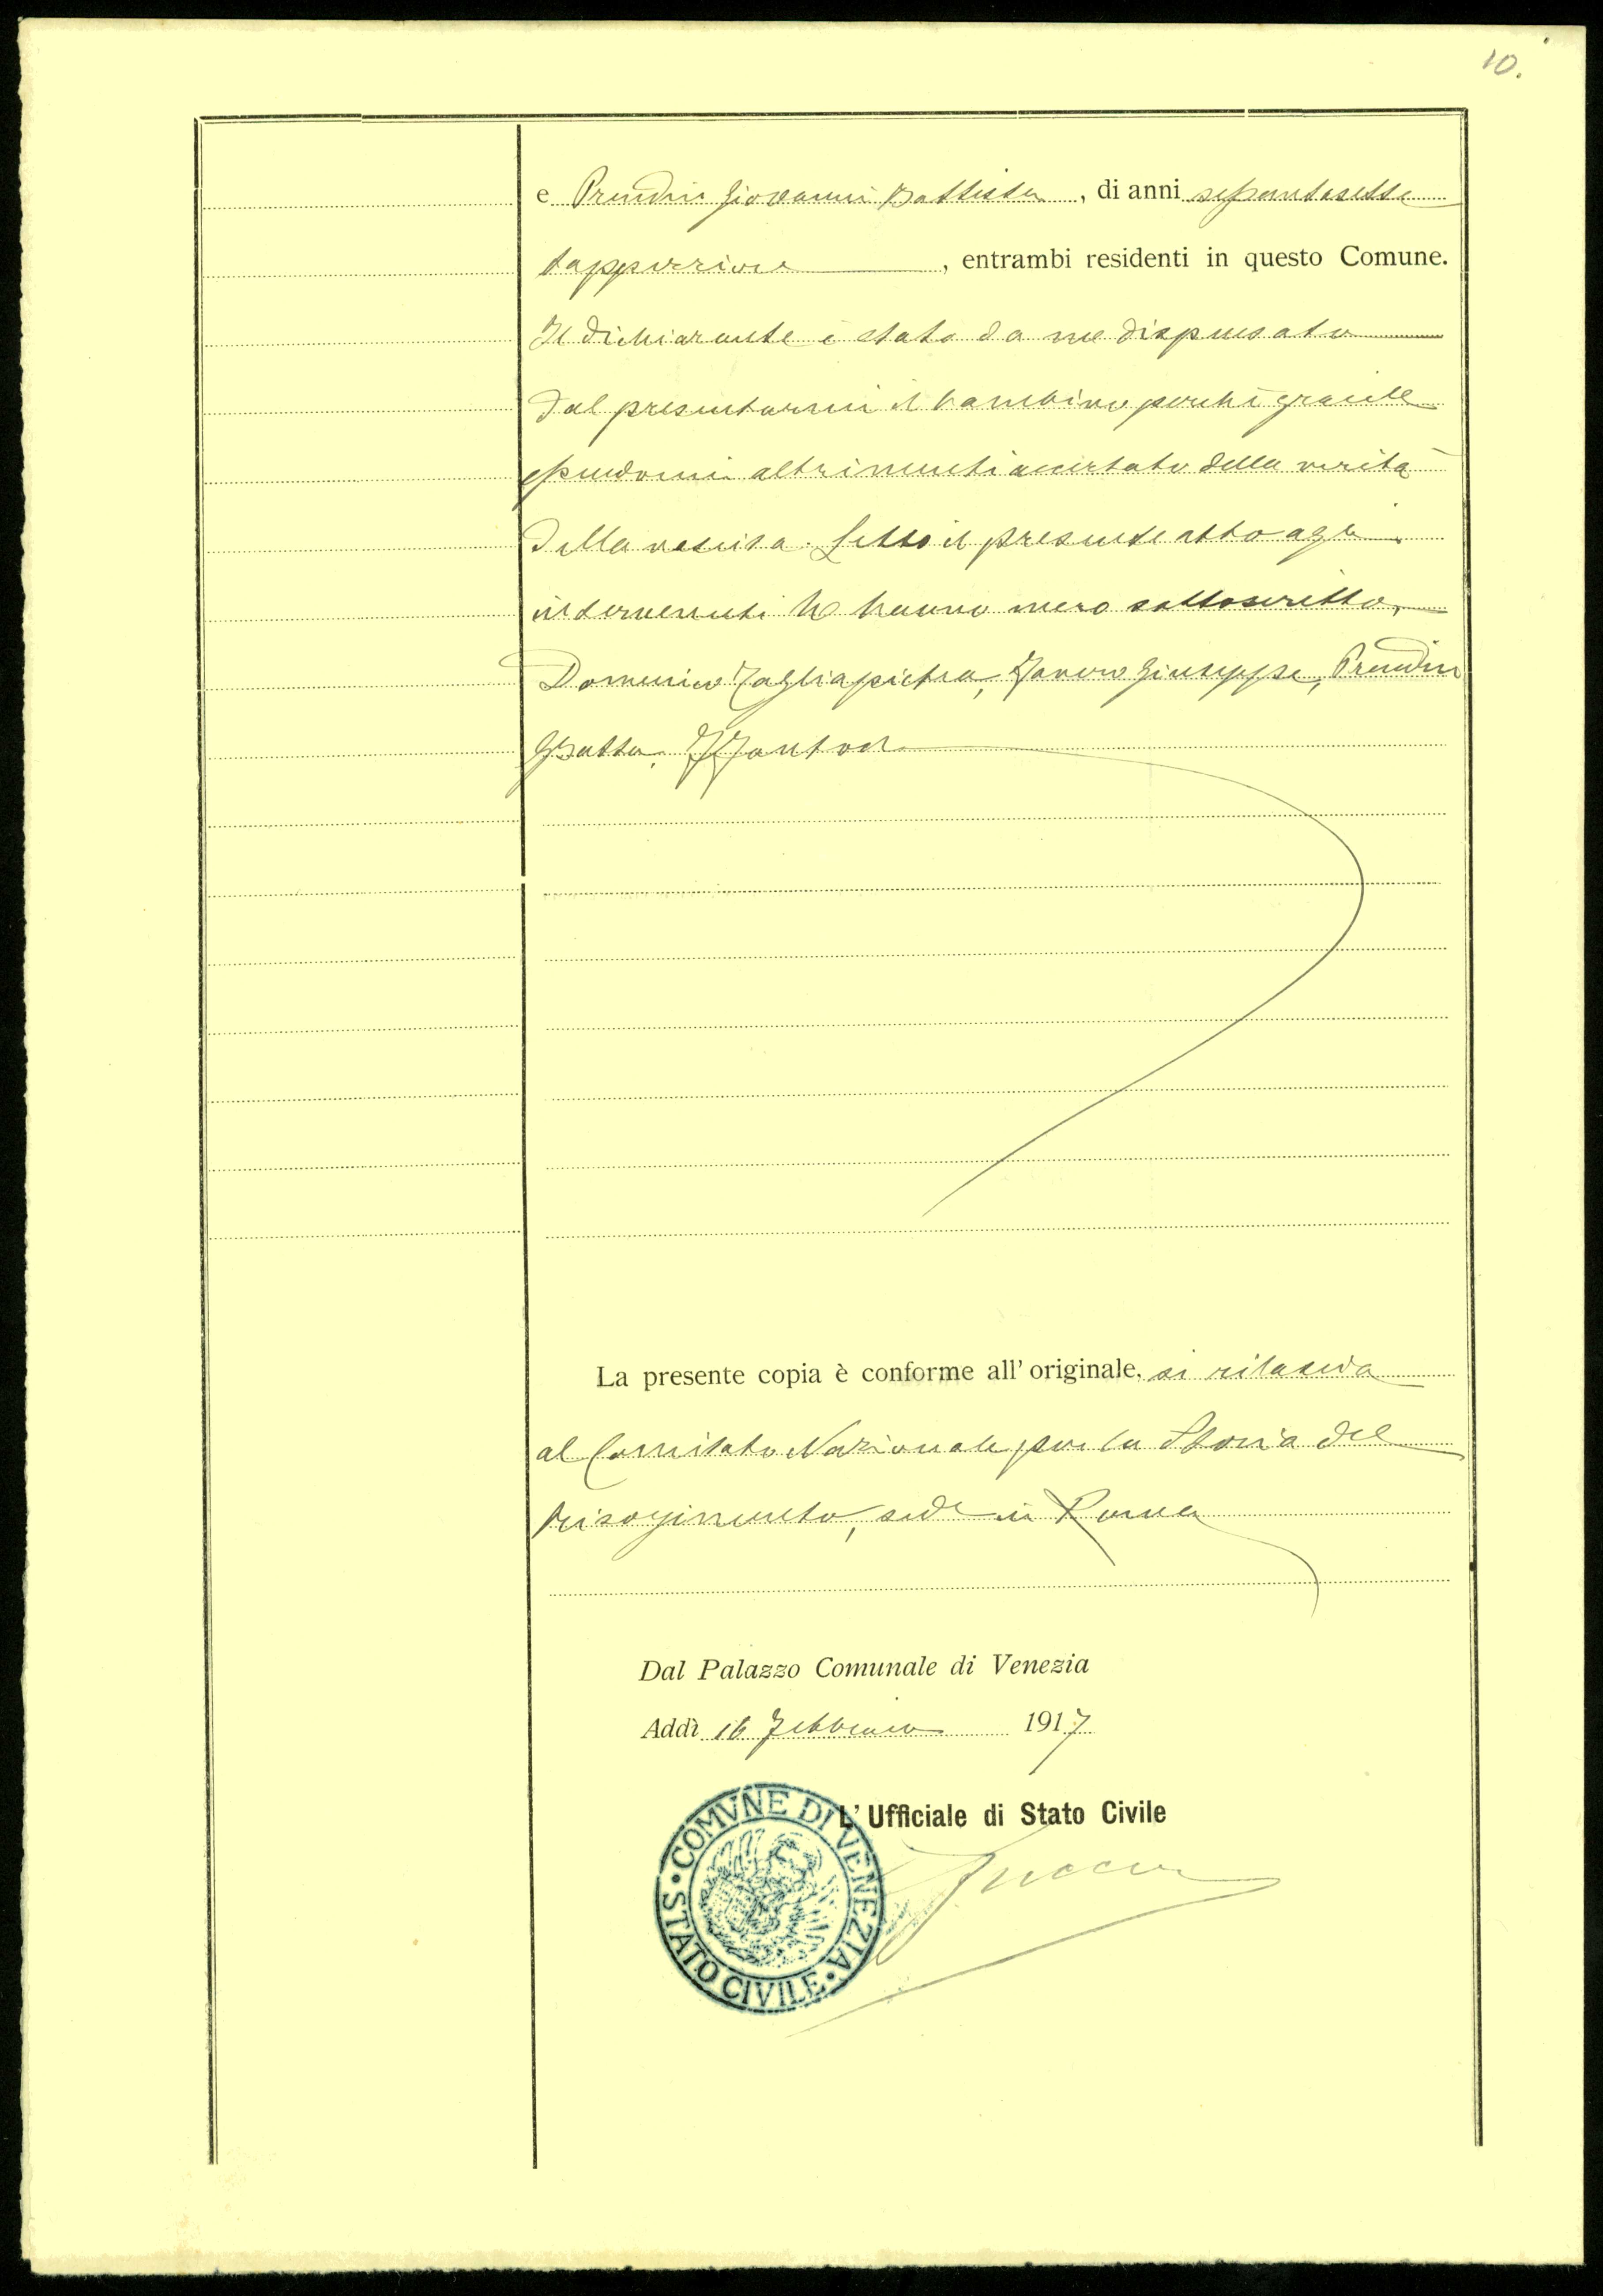 10.
e Prendin Giovanni Battista, di anni sessantasette
tapperiere, entrambi residenti in questo Comune.
Il dichiarante è stato da me dispensato
dal presentarmi il bambino perchè gracile
essendomi altrimenti accertato della verità
della nascita. Letto il presente atto agli
intervenuti lo hanno meco sottoscritto,
Domenico Tagliapietra, Giuseppe, Prendin
GBatta,
La presente copia è conforme all' originale. si rilascia
al Comitato Nazionale per la Storia del
risorgimento, sede in Roma
Dal Palazzo Comunale di Venezia
Addì 16 Febbraio 1917
L' Ufficiale di Stato Civile
COMVNE DI VENEZIA • STATO CIVILE •